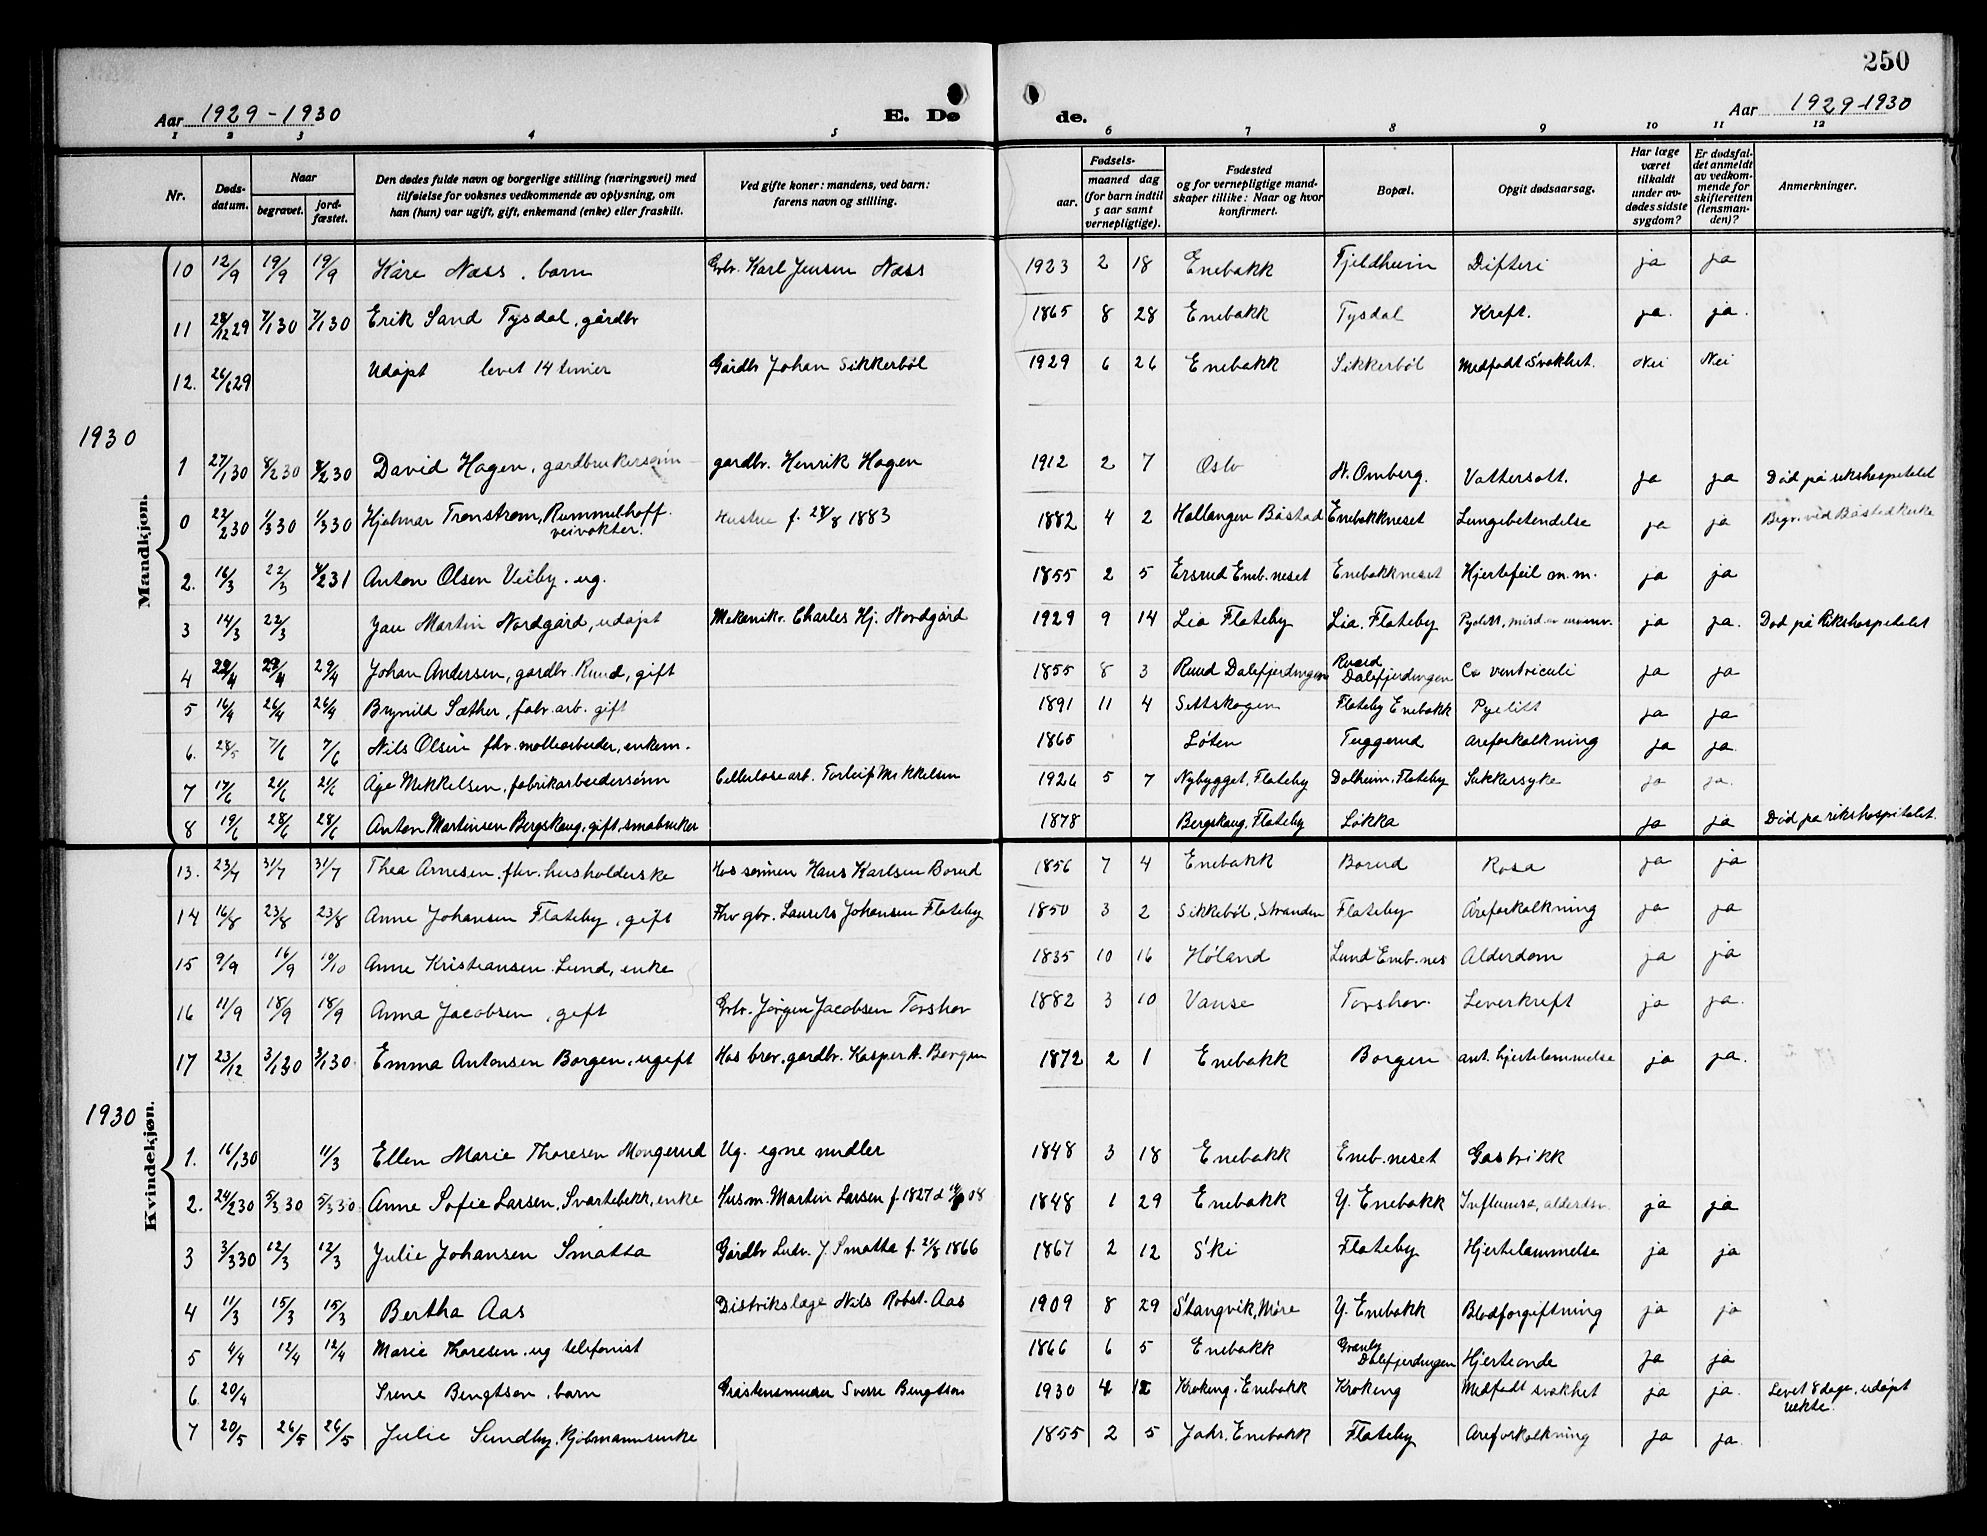 250
Aar 1929-1930 E. Dø de. Aar 1929-1930
1 2 3 4 5 6 7 8 9 10 11 12
Nr. Døds-datum. Naar begravet. jord-fæstet. Den dødes fulde navn og borgerlige stilling (næringsvei) med tilføielse for voksnes vedkommende av oplysning, om han (hun) var ugift, gift, enkemand (enke) eller fraskilt. Ved gifte koner: mandens, ved barn: farens navn og stilling. Fødsels- aar. maaned dag (for barn indtil 5 aar samt vernepligtige). Fødested og for vernepligtige mand-skaper tillike: Naar og hvor konfirmert. Bopæl. Opgit dødsaarsag. Har læge været tilkaldt under av-dødes sidste sygdom? Er dødsfal-det anmeldt av vedkom-mende for skifteretten (lensman-den)? Anmerkninger.
Mandkjøn.
10 12/9 19/9 19/9 Kåre Næss, barn Grbr. Karl Jensen Næss 1923 2 18 Enebakk Fjeldheim Difteri ja ja
11 28/12 29 7/1 30 7/1 30 Erik Sand Tysdal, gårdbr 1865 8 28 Enebakk Tysdal Kreft. ja. ja.
12. 26/6 29 Udøpt levet 14 timer Gårdbr Johan Sikkerbøl 1929 6 26 Enebakk Sikkerbøl Medfødt Svakhet. Nei Nei
1930
1 27/1 30 8/2 30 8/2 30 David Hagen, gardbrukersønn gardbr. Henrik Hagen 1912 2 7 Oslo N. Omberg. Vattersott. ja ja Død på rikshospitalet
0 22/2 30 1/3 30 1/3 30 Hjalmar Trønstrøm, Rummelhoff. veivokter. Hustru f. 28/8 1883 1882 4 2 Hallangen Båstad Enebakkneset Lungebetendelse ja ja Begr. ved Båstad kirke
2. 16/3 22/3 4/2 31 Anton Olsen Veiby. ug. 1855 2 5 Ersrud Eneb.neset Enebakkneset Hjertefeil m.m. ja ja
3 14/3 22/3 Jan Martin Nordgård, udøpt Mekanikr. Charles Hj. Nordgård 1929 9 14 Lia Flateby Lia. Flateby ja ja. Død på Rikshospitalet
4 22/4 29/4 29/4 Johan Andersen, gardbr. Ruud, gift 1855 8 3 Ruud Dalefjerdingen Ruud Dalefjerdingen Ca ventriculi ja ja
5 16/4 26/4 26/4 Brynild Sæther, fabr. arb. gift 1891 11 4 Setskogen Flateby Enebakk Pyelitt ja ja
6. 28/5 7/6 7/6 Nils Olsen fhv. møllearbeider, enkem. 1865 Løten Tuggerud Åreforkalkning ja ja.
7 17/6 21/6 21/6 Åge Mikkelsen, fabrikarbeidersønn Cellulosearb. Torleif Mikkelsen 1926 5 7 Nybygget, Flateby Dalheim. Flateby Sukkersyke ja ja.
8 19/6 28/6 28/6 Anton Martinsen Bergskaug, gift, småbruker 1878 Bergskaug, Flateby Løkka ja ja Død på rikshospitalet.
Kvindekjøn.
13. 23/7 31/7 31/7 Thea Arnesen. fhv. husholderske Hos sønnen Hans Karlsen Borud 1856 7 4 Enebakk Borud Rosa ja ja
14 16/8 23/8 23/8 Anne Johansen Flateby, gift Fhv gbr. Laurits Johansen Flateby 1850 3 2 Sikkebøl, Stranden Flateby Åreforkalkning ja ja
15 9/9 16/9 19/10 Anne Kristiansen Lund, enke 1835 10 16 Høland Lund Eneb.nes Alderdom ja ja
16 11/9 18/9 18/9 Anna Jacobsen, gift Grbr. Jørgen Jacobsen Torshov 1882 3 10 Vanse Torshov. Leverkreft ja ja.
17 23/12 3/1 30 3/1 30 Emma Antonsen Borgen, ugift Hos bror, gardbr. Kasper A. Borgen 1872 2 1 Enebakk Borgen ant. hjertelammelse ja ja.
1930
1. 16/1 30 11/3 Ellen Marie Thoresen Mongerud Ug. egne midler 1848 3 18 Enebakk Eneb.neset Gastrikk
2. 24/2 30 5/3 30 5/3 30 Anne Sofie Larsen, Svartebekk, enke Husm. Martin Larsen f 1827 d 08 1848 1 29 Enebakk Y. Enebakk Influensa, alderdom. ja ja
3 3/3 30 12/3 12/3 Julie Johansen Smatta Gårdbr Ludv. J. Smatta f. 21/8 1866 1867 2 12 Ski Flateby Hjertelammelse ja ja
4 11/3 15/3 15/3 Bertha Aas Distrikslæge Nils Robst. Aas 1909 8 29 Stangvik, Møre Y. Enebakk Blodforgiftning ja ja
5 4/4 12/4 12/4 Marie Thoresen. ug telefonist 1866 6 5 Enebakk Granly Dalefjerdingen Hjerteonde ja ja
6 20/4 Irene Bengtson, barn Gråstensmurer Sverre Bengtson 1930 4 12 Kroking. Enebakk Kroking Medfødt svakhet ja ja. Levet 8 dage, udøpt uekte.
7 20/5 26/5 26/5 Julie Sundby, Kjøbmannsenke 1855 2 5 Jahr, Enebakk Flateby Åreforkalkning ja ja.